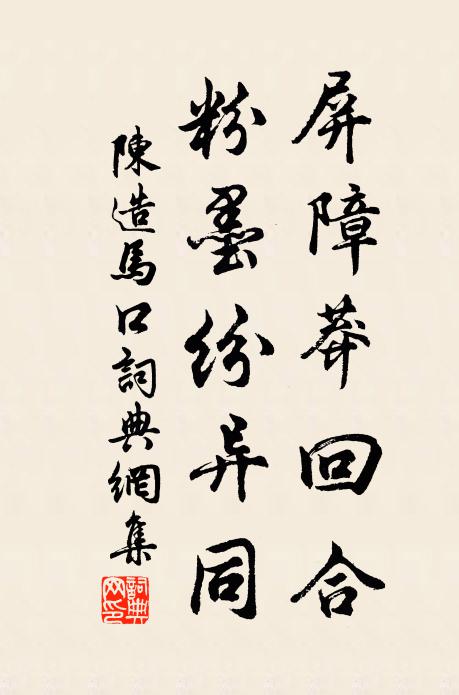 屏障莽回合
粉墨纷异同
陳造馬口詞典網集
詞典网印